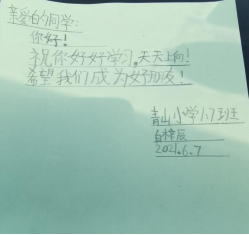 亲爱的同学:
你好!
祝你好好学习,天天上向!
希望我们成为好朋友!
青山小学1.7班
白梓辰
2021.6.7